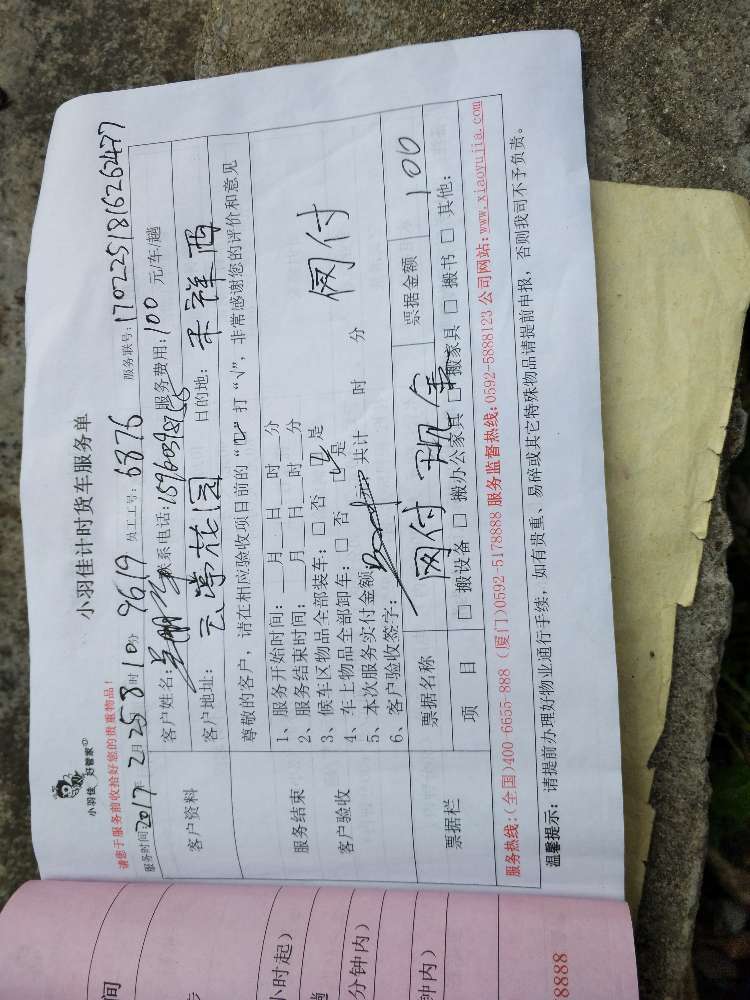 小羽佳 好管家
小羽佳计时货车服务单
请您于服务前收拾好您的贵重物品！
服务时间：2017年2月25日8时10分 9619 员工工号：6876 服务联号：1702251816262477
客户资料
客户姓名： 联系电话： 服务费用：100元/车/趟
客户地址： 花园 目的地：禾祥西
服务结束
客户验收
尊敬的客户，请在相应验收项目前的“□”打“√”，非常感谢您的评价和意见
1、服务开始时间：__月__日__时__分
2、服务结束时间：__月__日__时__分
3、候车区物品全部装车：□ 否 ☑ 是
4、车上物品全部卸车：□ 否 ☑ 是
5、本次服务实付金额 共计 时 分 网付
6、客户验收签字：
票据栏
票据名称 网付 现金 票据金额 100
项 目 □ 搬设备 □ 搬办公家具 □ 搬家具 □ 搬书 □ 其他：
服务热线：(全国)400-6655-888 (厦门)0592-5178888 服务监督热线：0592-5888123 公司网站：www.xiaoyujia.com
温馨提示：请提前办理好物业通行手续，如有贵重、易碎或其它特殊物品请提前申报，否则我司不予负责。
间
小时起)
趟
分钟内)
钟内)
8888